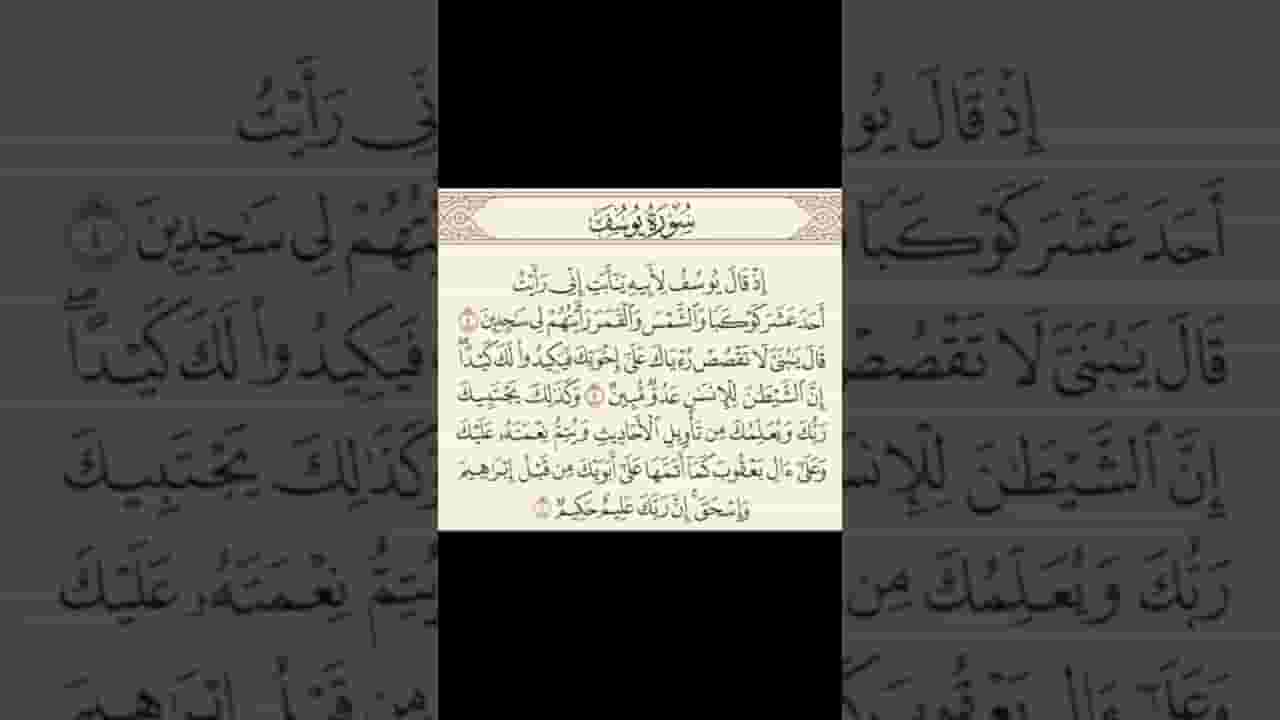 سُورَةُ يُوسُفَ
إِذْ قَالَ يُوسُفُ لِأَبِيهِ يَٰٓأَبَتِ إِنِّى رَأَيْتُ
أَحَدَ عَشَرَ كَوْكَبًا وَٱلشَّمْسَ وَٱلْقَمَرَ رَأَيْتُهُمْ لِى سَٰجِدِينَ ٤
قَالَ يَٰبُنَىَّ لَا تَقْصُصْ رُءْيَاكَ عَلَىٰٓ إِخْوَتِكَ فَيَكِيدُوا۟ لَكَ كَيْدًا ۖ
إِنَّ ٱلشَّيْطَٰنَ لِلْإِنسَٰنِ عَدُوٌّ مُّبِينٌ ٥ وَكَذَٰلِكَ يَجْتَبِيكَ
رَبُّكَ وَيُعَلِّمُكَ مِن تَأْوِيلِ ٱلْأَحَادِيثِ وَيُتِمُّ نِعْمَتَهُۥ عَلَيْكَ
وَعَلَىٰٓ ءَالِ يَعْقُوبَ كَمَآ أَتَمَّهَا عَلَىٰٓ أَبَوَيْكَ مِن قَبْلُ إِبْرَٰهِيمَ
وَإِسْحَٰقَ ۚ إِنَّ رَبَّكَ عَلِيمٌ حَكِيمٌ ٦